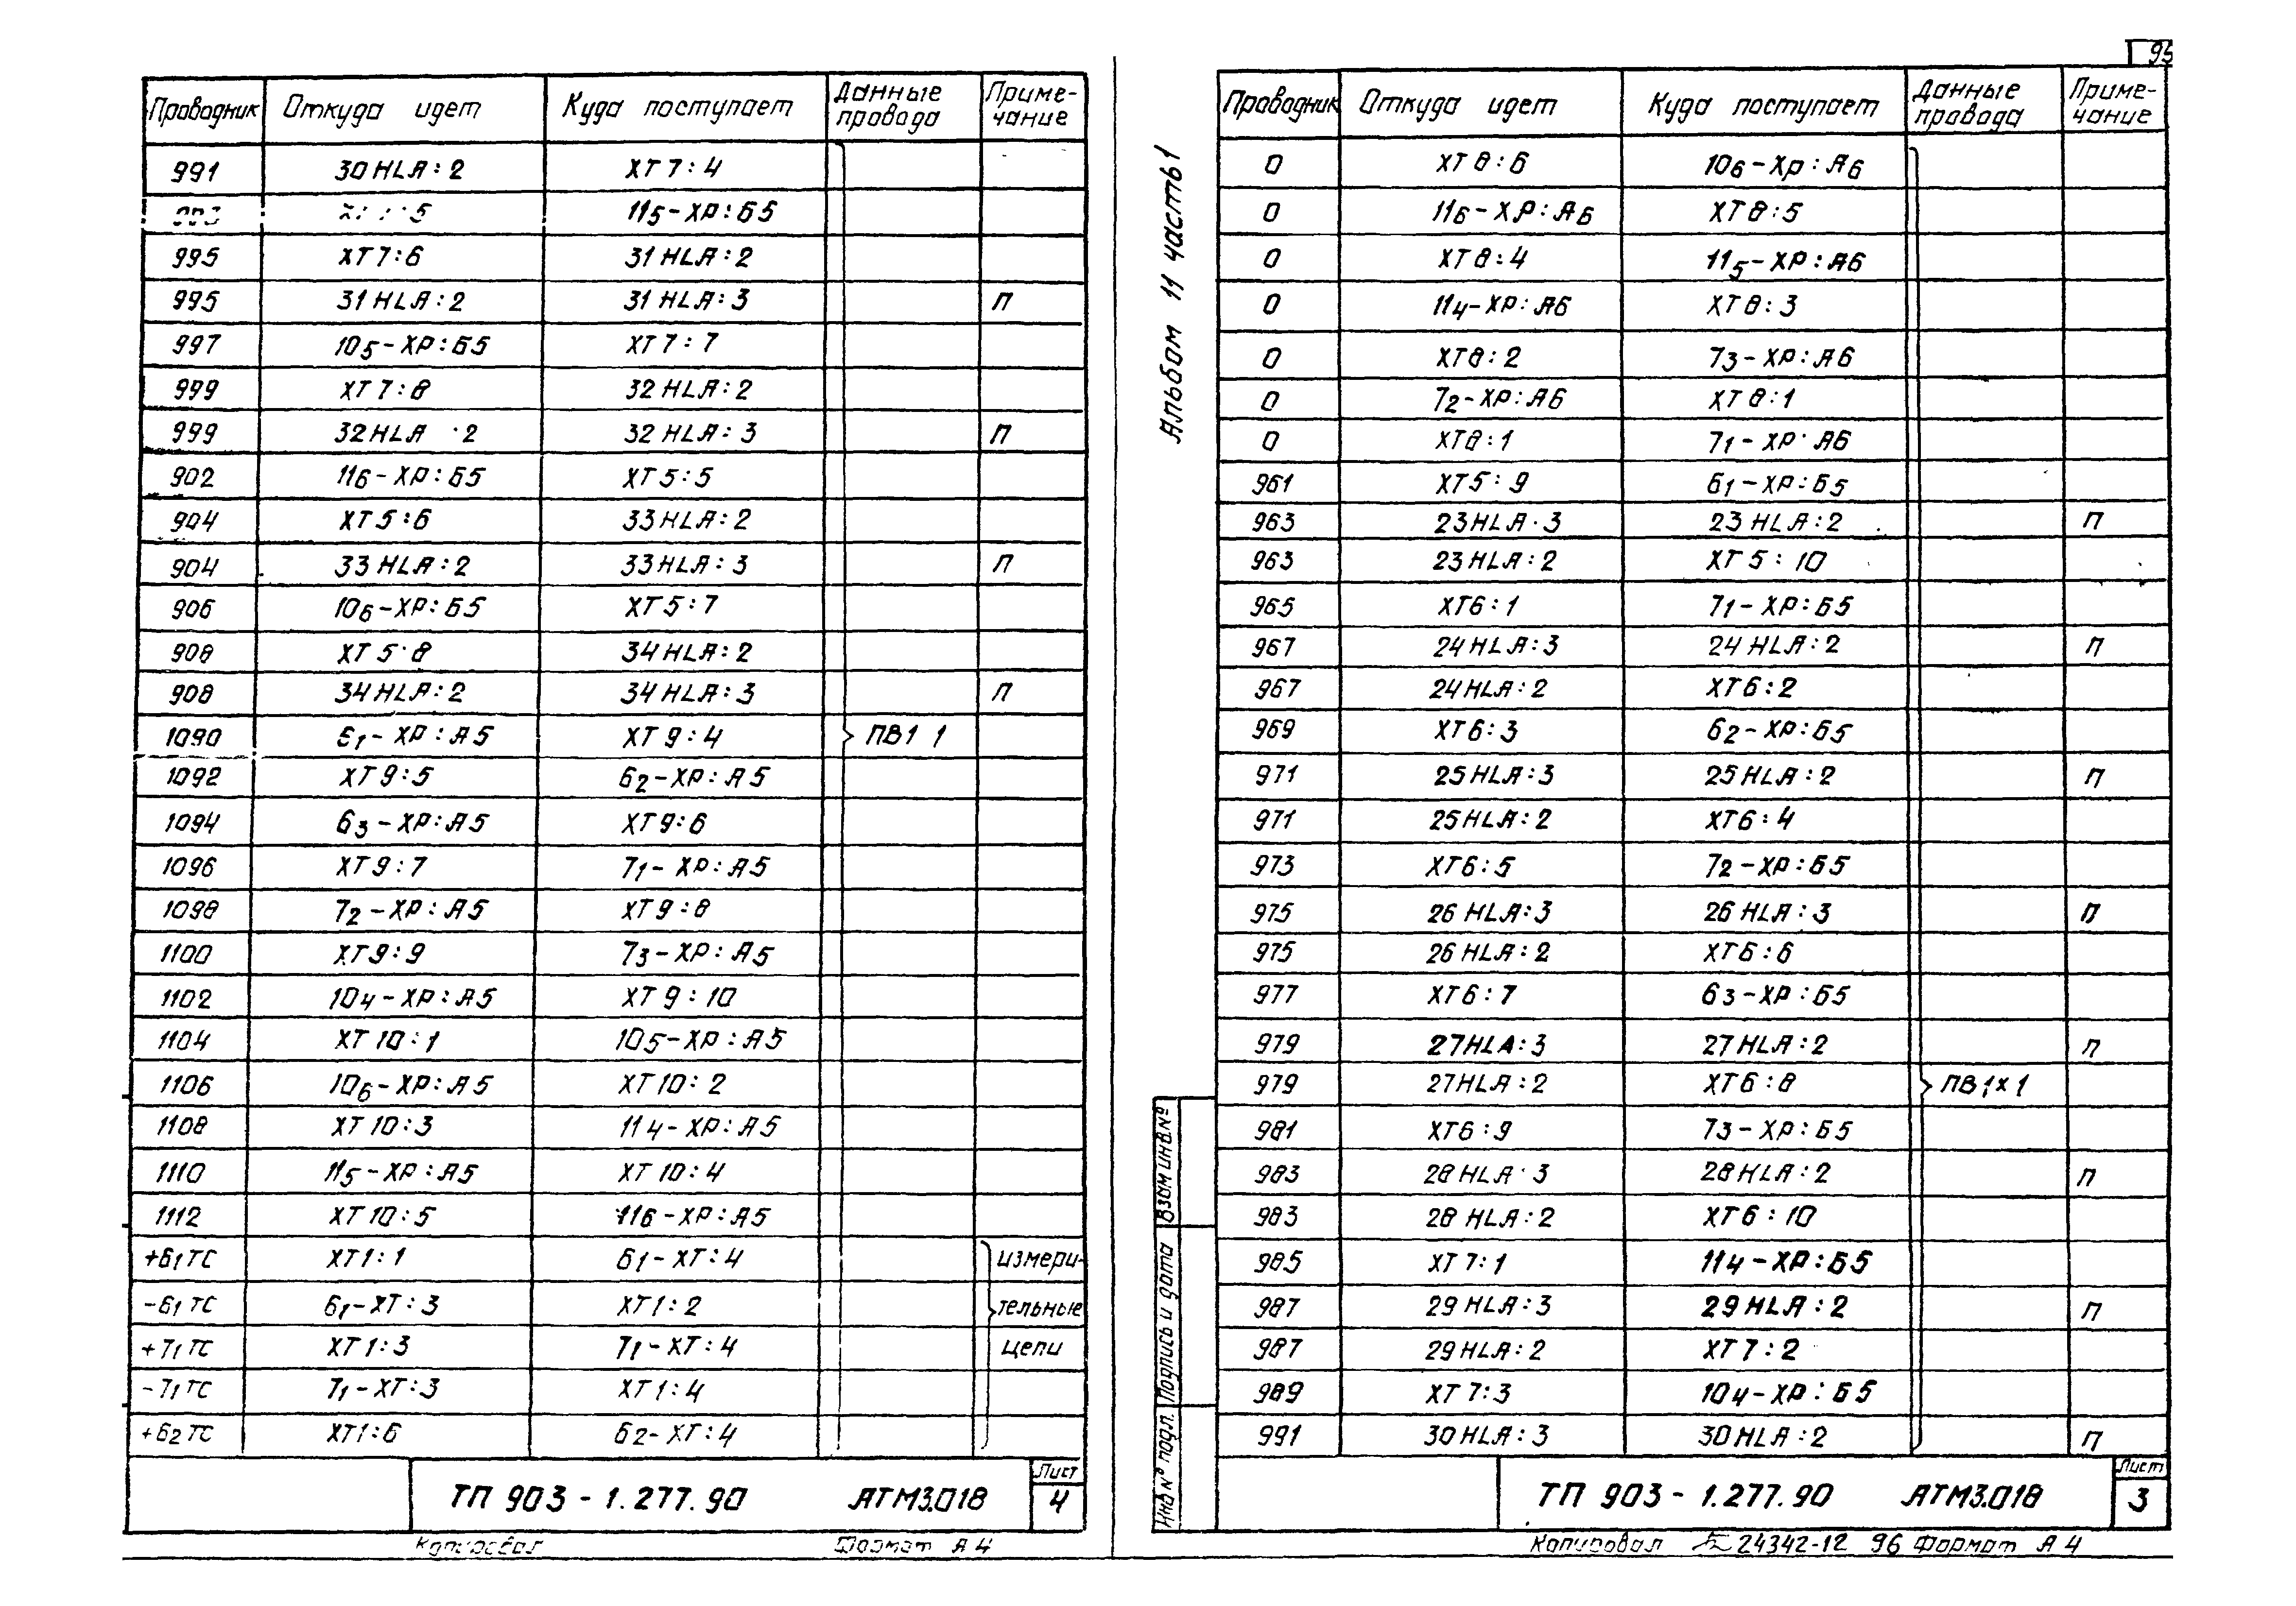 Проводник Откуда идет Куда поступает Данные провода Примечание
991 30HLA:2 XT7:4
5 11₅-XP:Б5
995 XT7:6 31HLA:2
995 31HLA:2 31HLA:3 П
997 10₅-XP:Б5 XT7:7
999 XT7:8 32HLA:2
999 32HLA·2 32HLA:3 П
902 11₆-XP:Б5 XT5:5
904 XT5:6 33HLA:2
904 33HLA:2 33HLA:3 П
906 10₆-XP:Б5 XT5:7
908 XT5·8 34HLA:2
908 34HLA:2 34HLA:3 П
1090 6₁-XP:A5 XT9:4 ПВ1 1
1092 XT9:5 6₂-XP:A5
1094 6₃-XP:A5 XT9:6
1096 XT9:7 7₁-XP:A5
1098 7₂-XP:A5 XT9:8
1100 XT9:9 7₃-XP:A5
1102 10₄-XP:A5 XT9:10
1104 XT10:1 10₅-XP:A5
1106 10₆-XP:A5 XT10:2
1108 XT10:3 11₄-XP:A5
1110 11₅-XP:A5 XT10:4
1112 XT10:5 11₆-XP:A5
+6₁TC XT1:1 6₁-XT:4 измери-
-6₁TC 6₁-XT:3 XT1:2 тельные
+7₁TC XT1:3 7₁-XT:4 цепи
-7₁TC 7₁-XT:3 XT1:4
+6₂TC XT1:6 6₂-XT:4
ТП 903-1.277.90 АТМ3.018 Лист 4
Копировал Формат А4
95
Альбом 11 часть1
Проводник Откуда идет Куда поступает Данные провода Примечание
0 XT8:6 10₆-XP:A6
0 11₆-XP:A6 XT8:5
0 XT8:4 11₅-XP:A6
0 11₄-XP:A6 XT8:3
0 XT8:2 7₃-XP:A6
0 7₂-XP:A6 XT8:1
0 XT8:1 7₁-XP·A6
961 XT5:9 6₁-XP:Б5
963 23HLA·3 23HLA:2 П
963 23HLA:2 XT5:10
965 XT6:1 7₁-XP:Б5
967 24HLA:3 24HLA:2 П
967 24HLA:2 XT6:2
969 XT6:3 6₂-XP:Б5
971 25HLA:3 25HLA:2 П
971 25HLA:2 XT6:4
973 XT6:5 7₂-XP:Б5
975 26HLA:3 26HLA:3 П
975 26HLA:2 XT6:6
977 XT6:7 6₃-XP:Б5
979 27HLA:3 27HLA:2 П
979 27HLA:2 XT6:8 ПВ1×1
981 XT6:9 7₃-XP:Б5
983 28HLA·3 28HLA:2 П
983 28HLA:2 XT6:10
985 XT7:1 11₄-XP:Б5
987 29HLA:3 29HLA:2 П
987 29HLA:2 XT7:2
989 XT7:3 10₄-XP:Б5
991 30HLA:3 30HLA:2 П
Взам инв.№
Подпись и дата
Инв № подл.
ТП 903-1.277.90 АТМ3.018 Лист 3
Копировал 24342-12 96 Формат А4